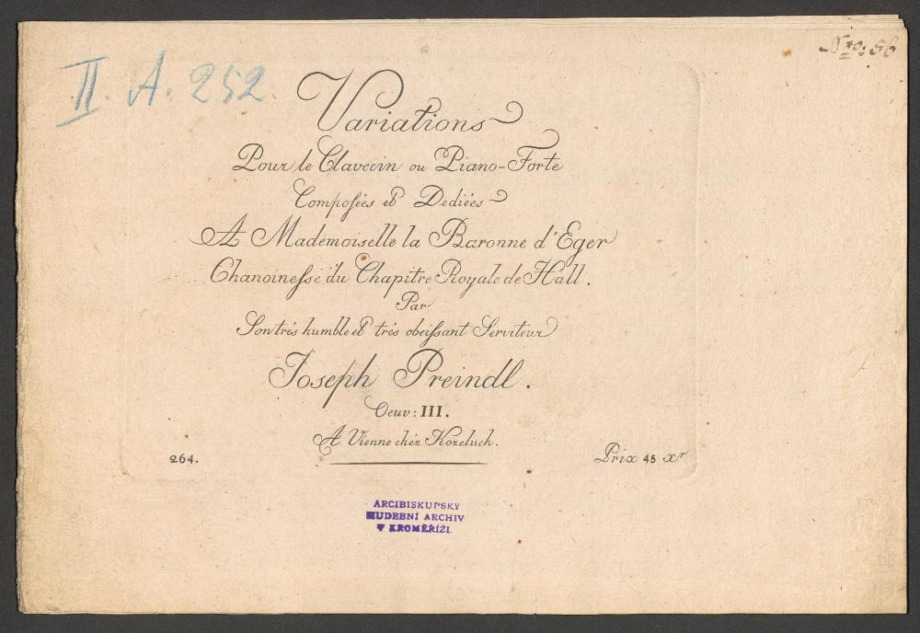 II. A. 252.
Nro: 86
Variations
Pour le Clavecin ou Piano-Forte
Composées et Dediées
A Mademoiselle la Baronne d'Eger
Chanoinesse du Chapitre Royale de Hall.
Par
Son trés humble et trés obeissant Serviteur
Joseph Preindl.
Oeuv: III.
A Vienne chéz Kozeluch.
264.
Prix 45 Xr
ARCIBISKUPSKÝ
HUDEBNÍ ARCHIV
V KROMĚŘÍŽI.